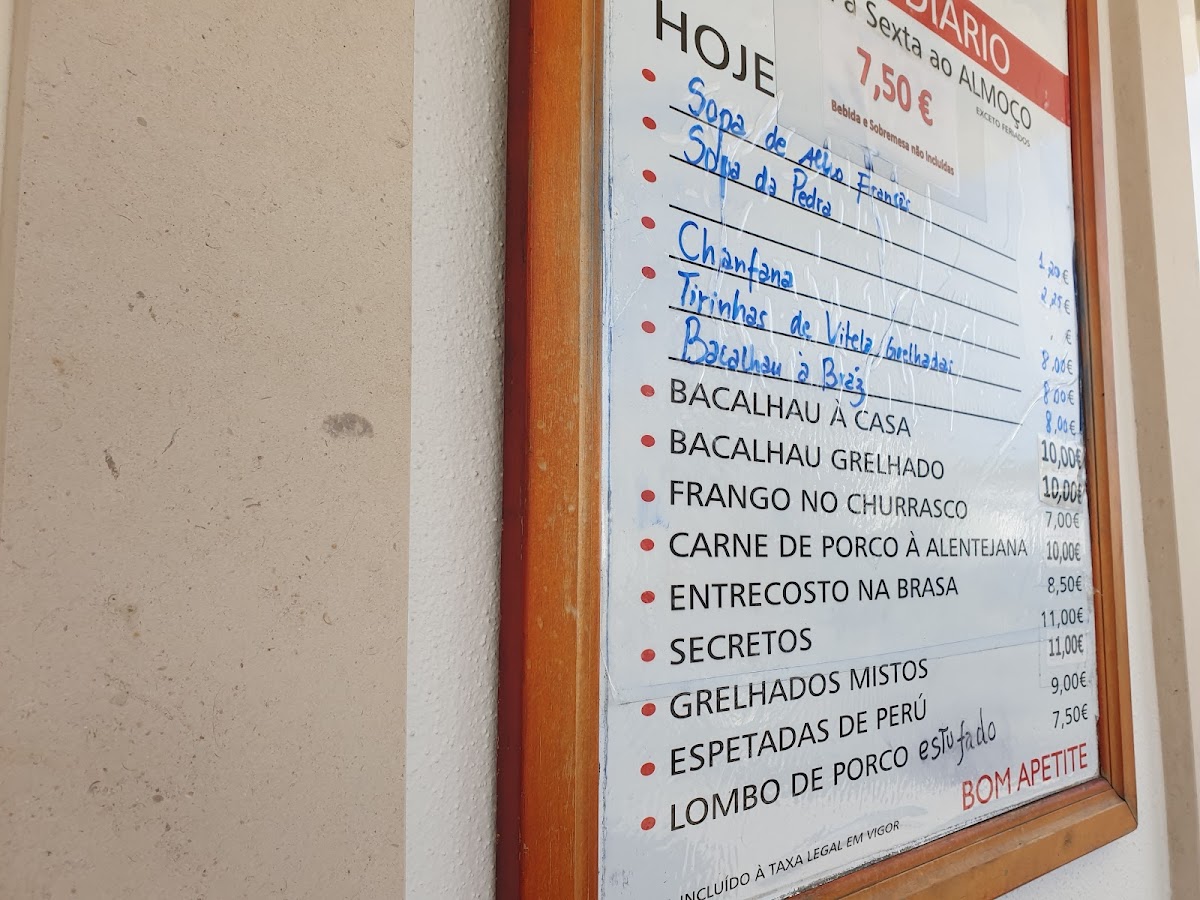 DIÁRIO
a Sexta ao ALMOÇO
EXCETO FERIADOS
7,50 €
Bebida e Sobremesa não incluídas
HOJE
Sopa de Alho Francês 1,20€
Sopa da Pedra 2,25€
€
Chanfana 8,00€
Tirinhas de Vitela Grelhadas 8,00€
Bacalhau à Bráz 8,00€
BACALHAU À CASA 10,00€
BACALHAU GRELHADO 10,00€
FRANGO NO CHURRASCO 7,00€
CARNE DE PORCO À ALENTEJANA 10,00€
ENTRECOSTO NA BRASA 8,50€
SECRETOS 11,00€
GRELHADOS MISTOS 11,00€
ESPETADAS DE PERÚ 9,00€
LOMBO DE PORCO estufado 7,50€
BOM APETITE
INCLUÍDO À TAXA LEGAL EM VIGOR